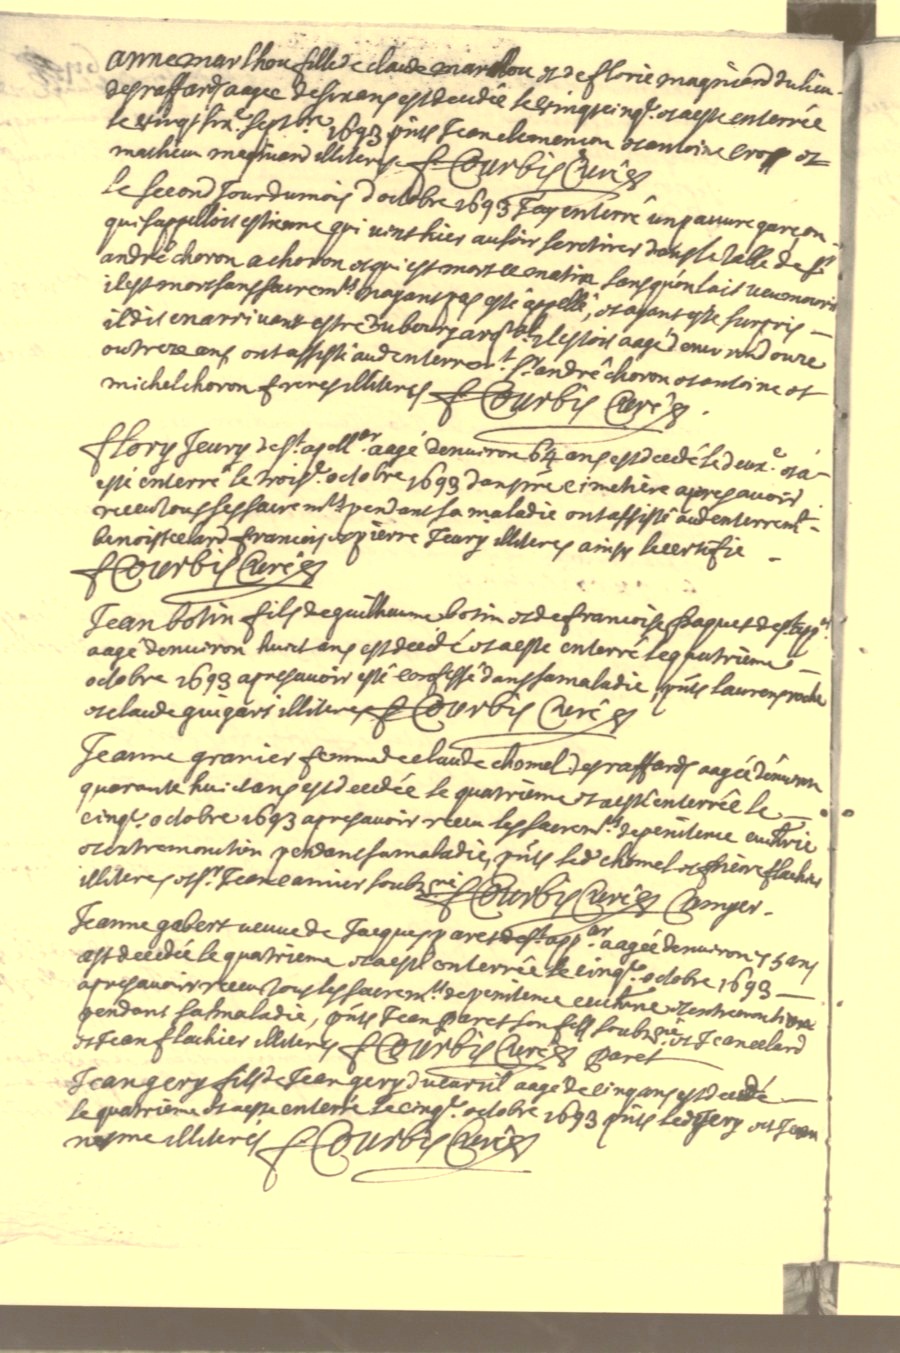 anne marlhou fille de claude marlhou et de florie magniard du lieu
de graffard aagee de six ans est decedée le vingt cinq.e et a esté enterrée
le vingt six.e sept.bre 1693 p̃ñts Jean clemencon et antoine cros et
mathieu magniard illiteres f Courbis Curé
le second Jour du mois d octobre 1693 Jay enterré un pauure garcon
qui s appelloit estienne qui vint hier au soir se retirer dans le table de s.r
andré choron a choron et qui est mort ce matin sans qu'on l ait veu mourir
il est mort sans sacrem.ts n ayant pas esté appellé, et ayant esté surpris
il dit en arrivant estre du bourg arg.al il estoit aagé d env.n d ouze
ou treze ans ont assisté au d enterrem.t s.r andré choron et antoine et
michel choron freres illiteres f Courbis Curé
flory Jeury de s.t apoll.ar aagé d enuiron 64 ans est decedé le deux.e et a
esté enterré le trois.e octobre 1693 dans n̄re cimetière apres avoir
receu tous les sacrem.ts pendant sa maladie ont assisté au d enterrem.t
benoist celard francois et pierre Jeury illiteres ainsy le certifie
f Courbis Curé
Jean botin fils de guilhaume botin et de francoise paquet de s.t app.ar
aagé d enuiron huict ans est decedé et a esté enterré le quatrieme
octobre 1693 apres avoir esté confessé dans sa maladie, p̃ñts laurens roche
et claude guigart illiteres f Courbis Curé
Jeanne granier femme de claude chomel de graffard aagée d enuiron
quarante huict ans est decedée le quatrieme et a esté enterrée le
cinq.e octobre 1693 apres avoir receu les sacrem.ts de penitence eucharie
et extremonction pendant sa maladie, p̃ñts led chomel et pierre flachier
illiteres et s.r Jean camier soubz.né f Courbis Curé Camyer
Jeanne gabert veuve de Jacques paret de s.t app.ar aagée d enuiron 75 ans
est decedée le quatrieme et a esté enterrée le cinq.e octobre 1693
apres avoir receu tous les sacrem.ts de penitence eucharie et extremonction
pendant sa maladie, p̃ñts Jean paret son fils soubz.né et Jean celard
et Jean flachier illiteres f Courbis Curé Paret
Jean gery fils de Jean gery du curtil aagé de cinq ans est decedé
le quatrieme et a esté enterré le cinq.e octobre 1693 p̃ñts led gery et Jean
nesme illiterés f Courbis Curé